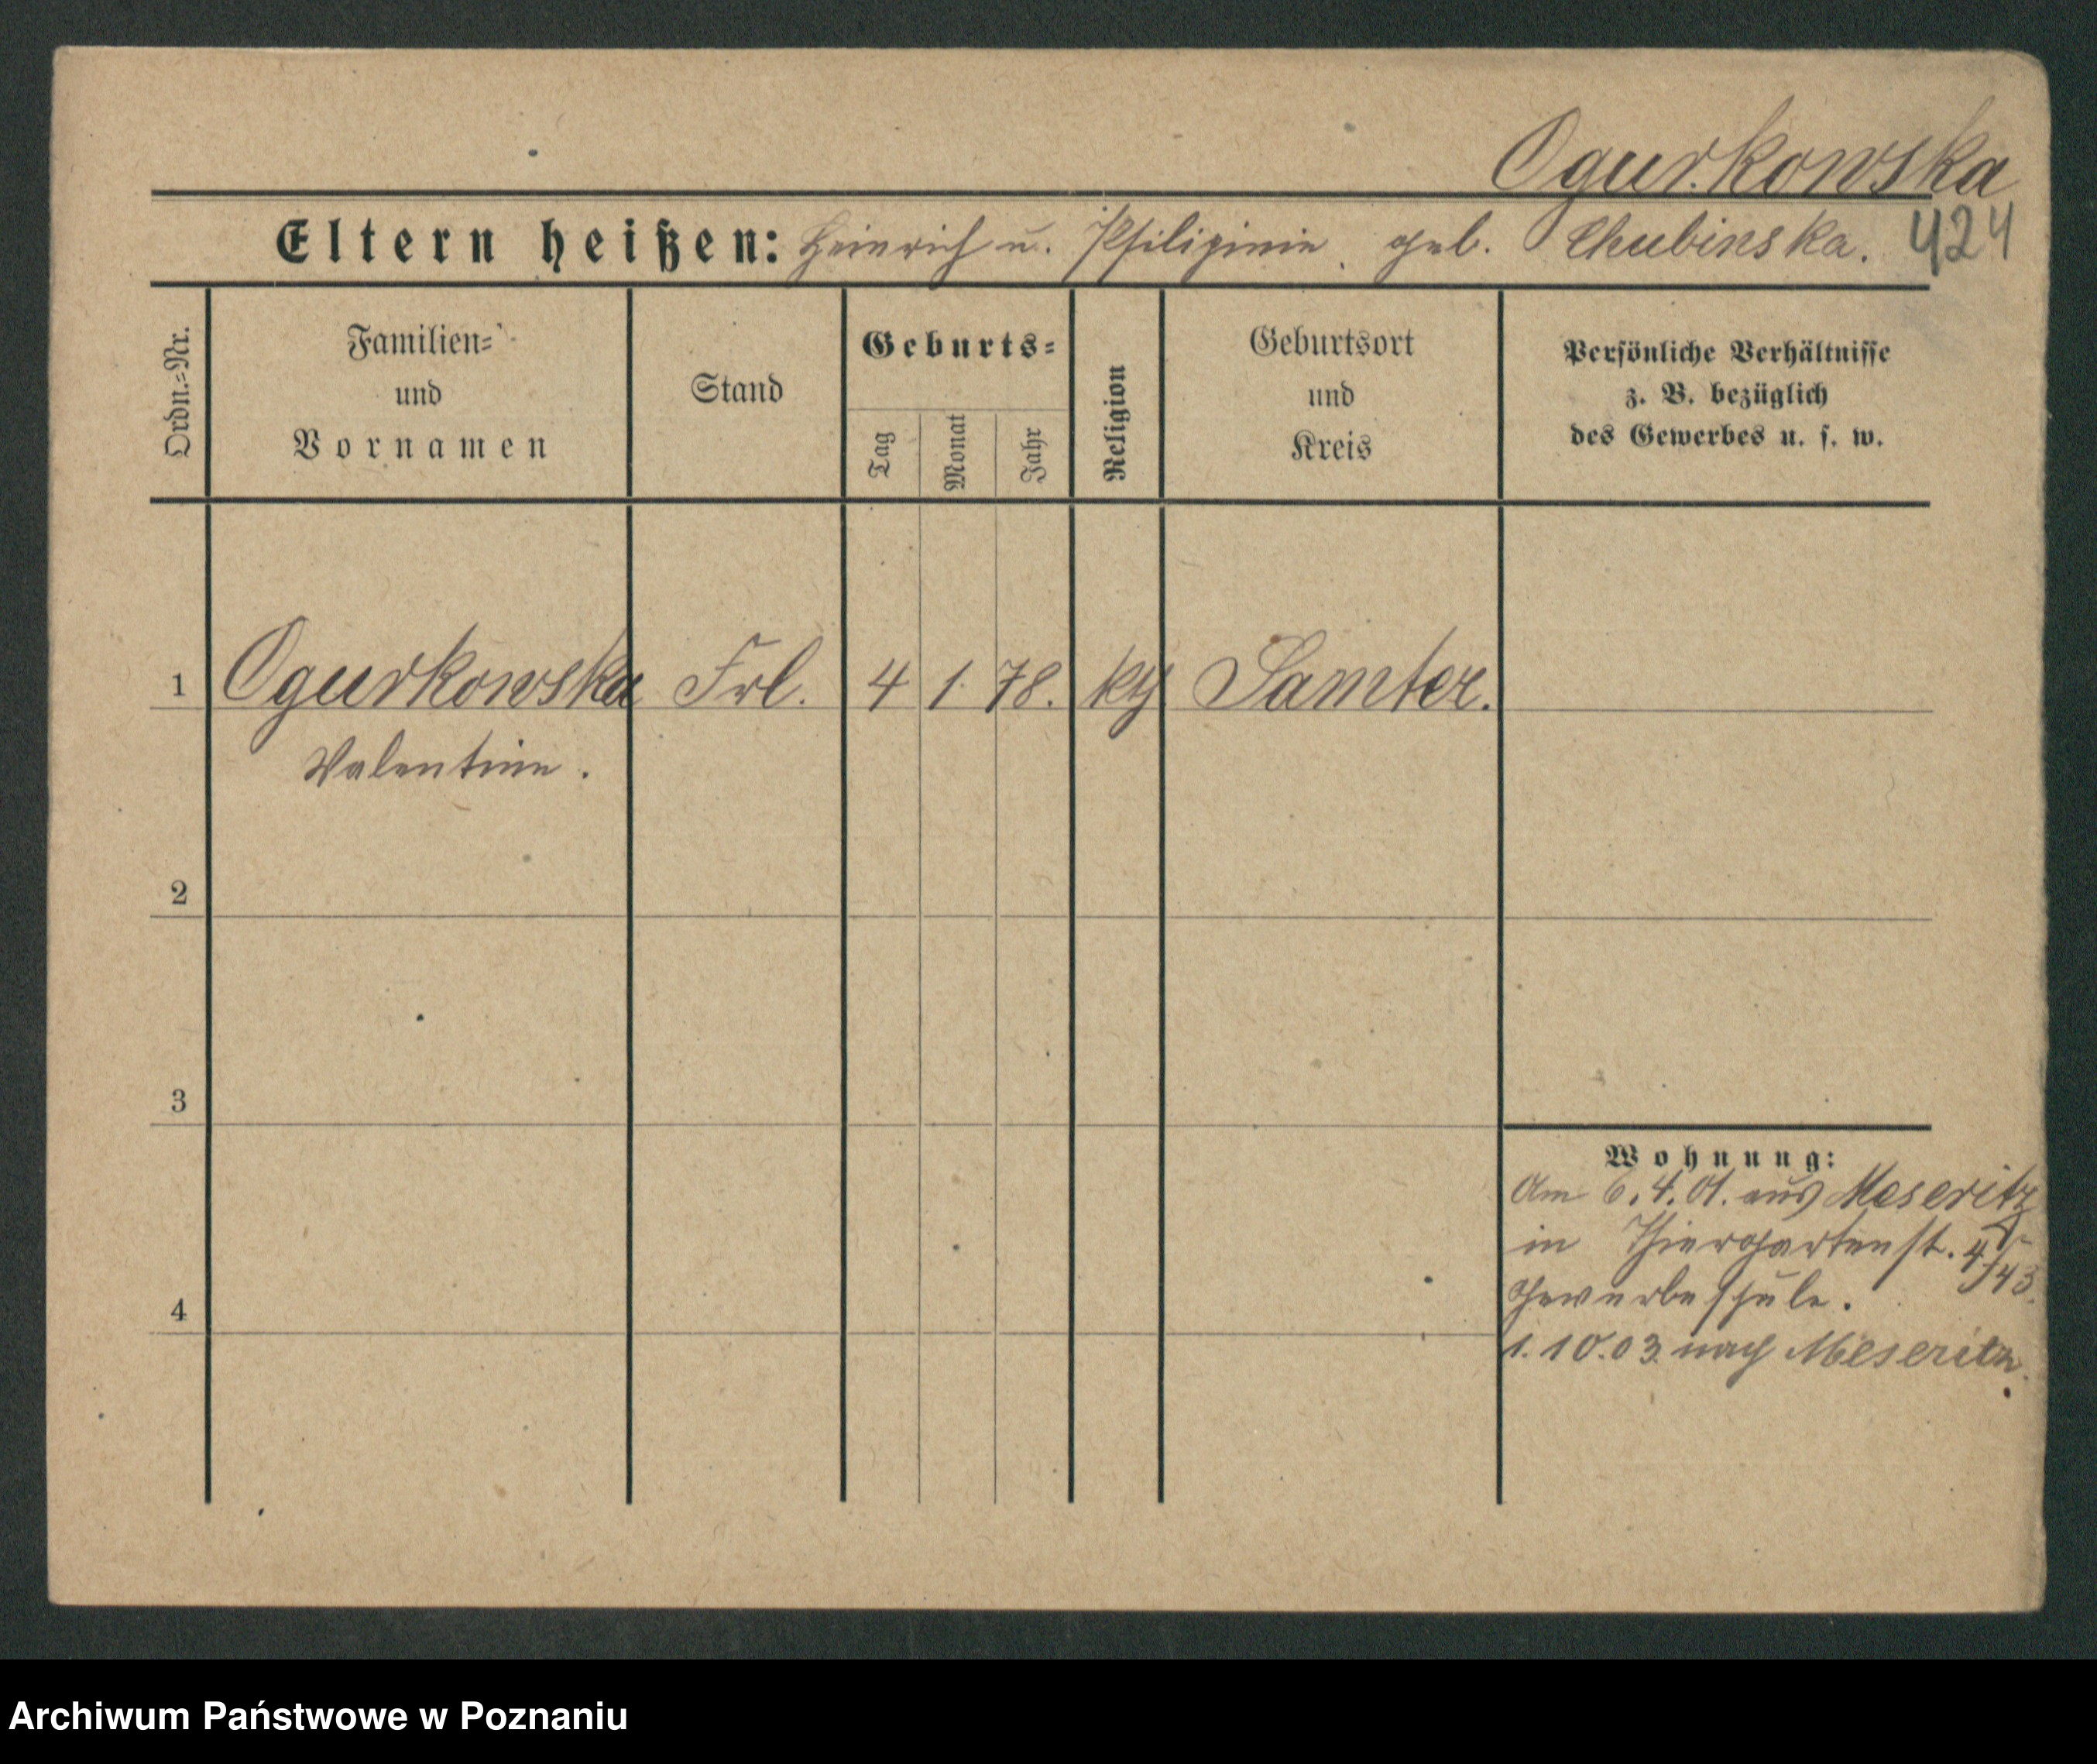 Ogurkowska
Eltern heißen: Heinrich u. geb. Chubinska. 424
Ordn.=Nr.
Familien=
und
Vornamen
Stand
Geburts=
Tag
Monat
Jahr
Religion
Geburtsort
und
Kreis
Persönliche Verhältnisse
z. B. bezüglich
des Gewerbes u. s. w.
1 Ogurkowska Frl. 4 1. 78. kth Samter.
Valentine.
2
3
4
Wohnung:
Am 6. 4. 01. aus Meseritz
in Thiergartenst. 4
Gewerbeschule.
1. 10. 03. nach Meseritz.
Archiwum Państwowe w Poznaniu